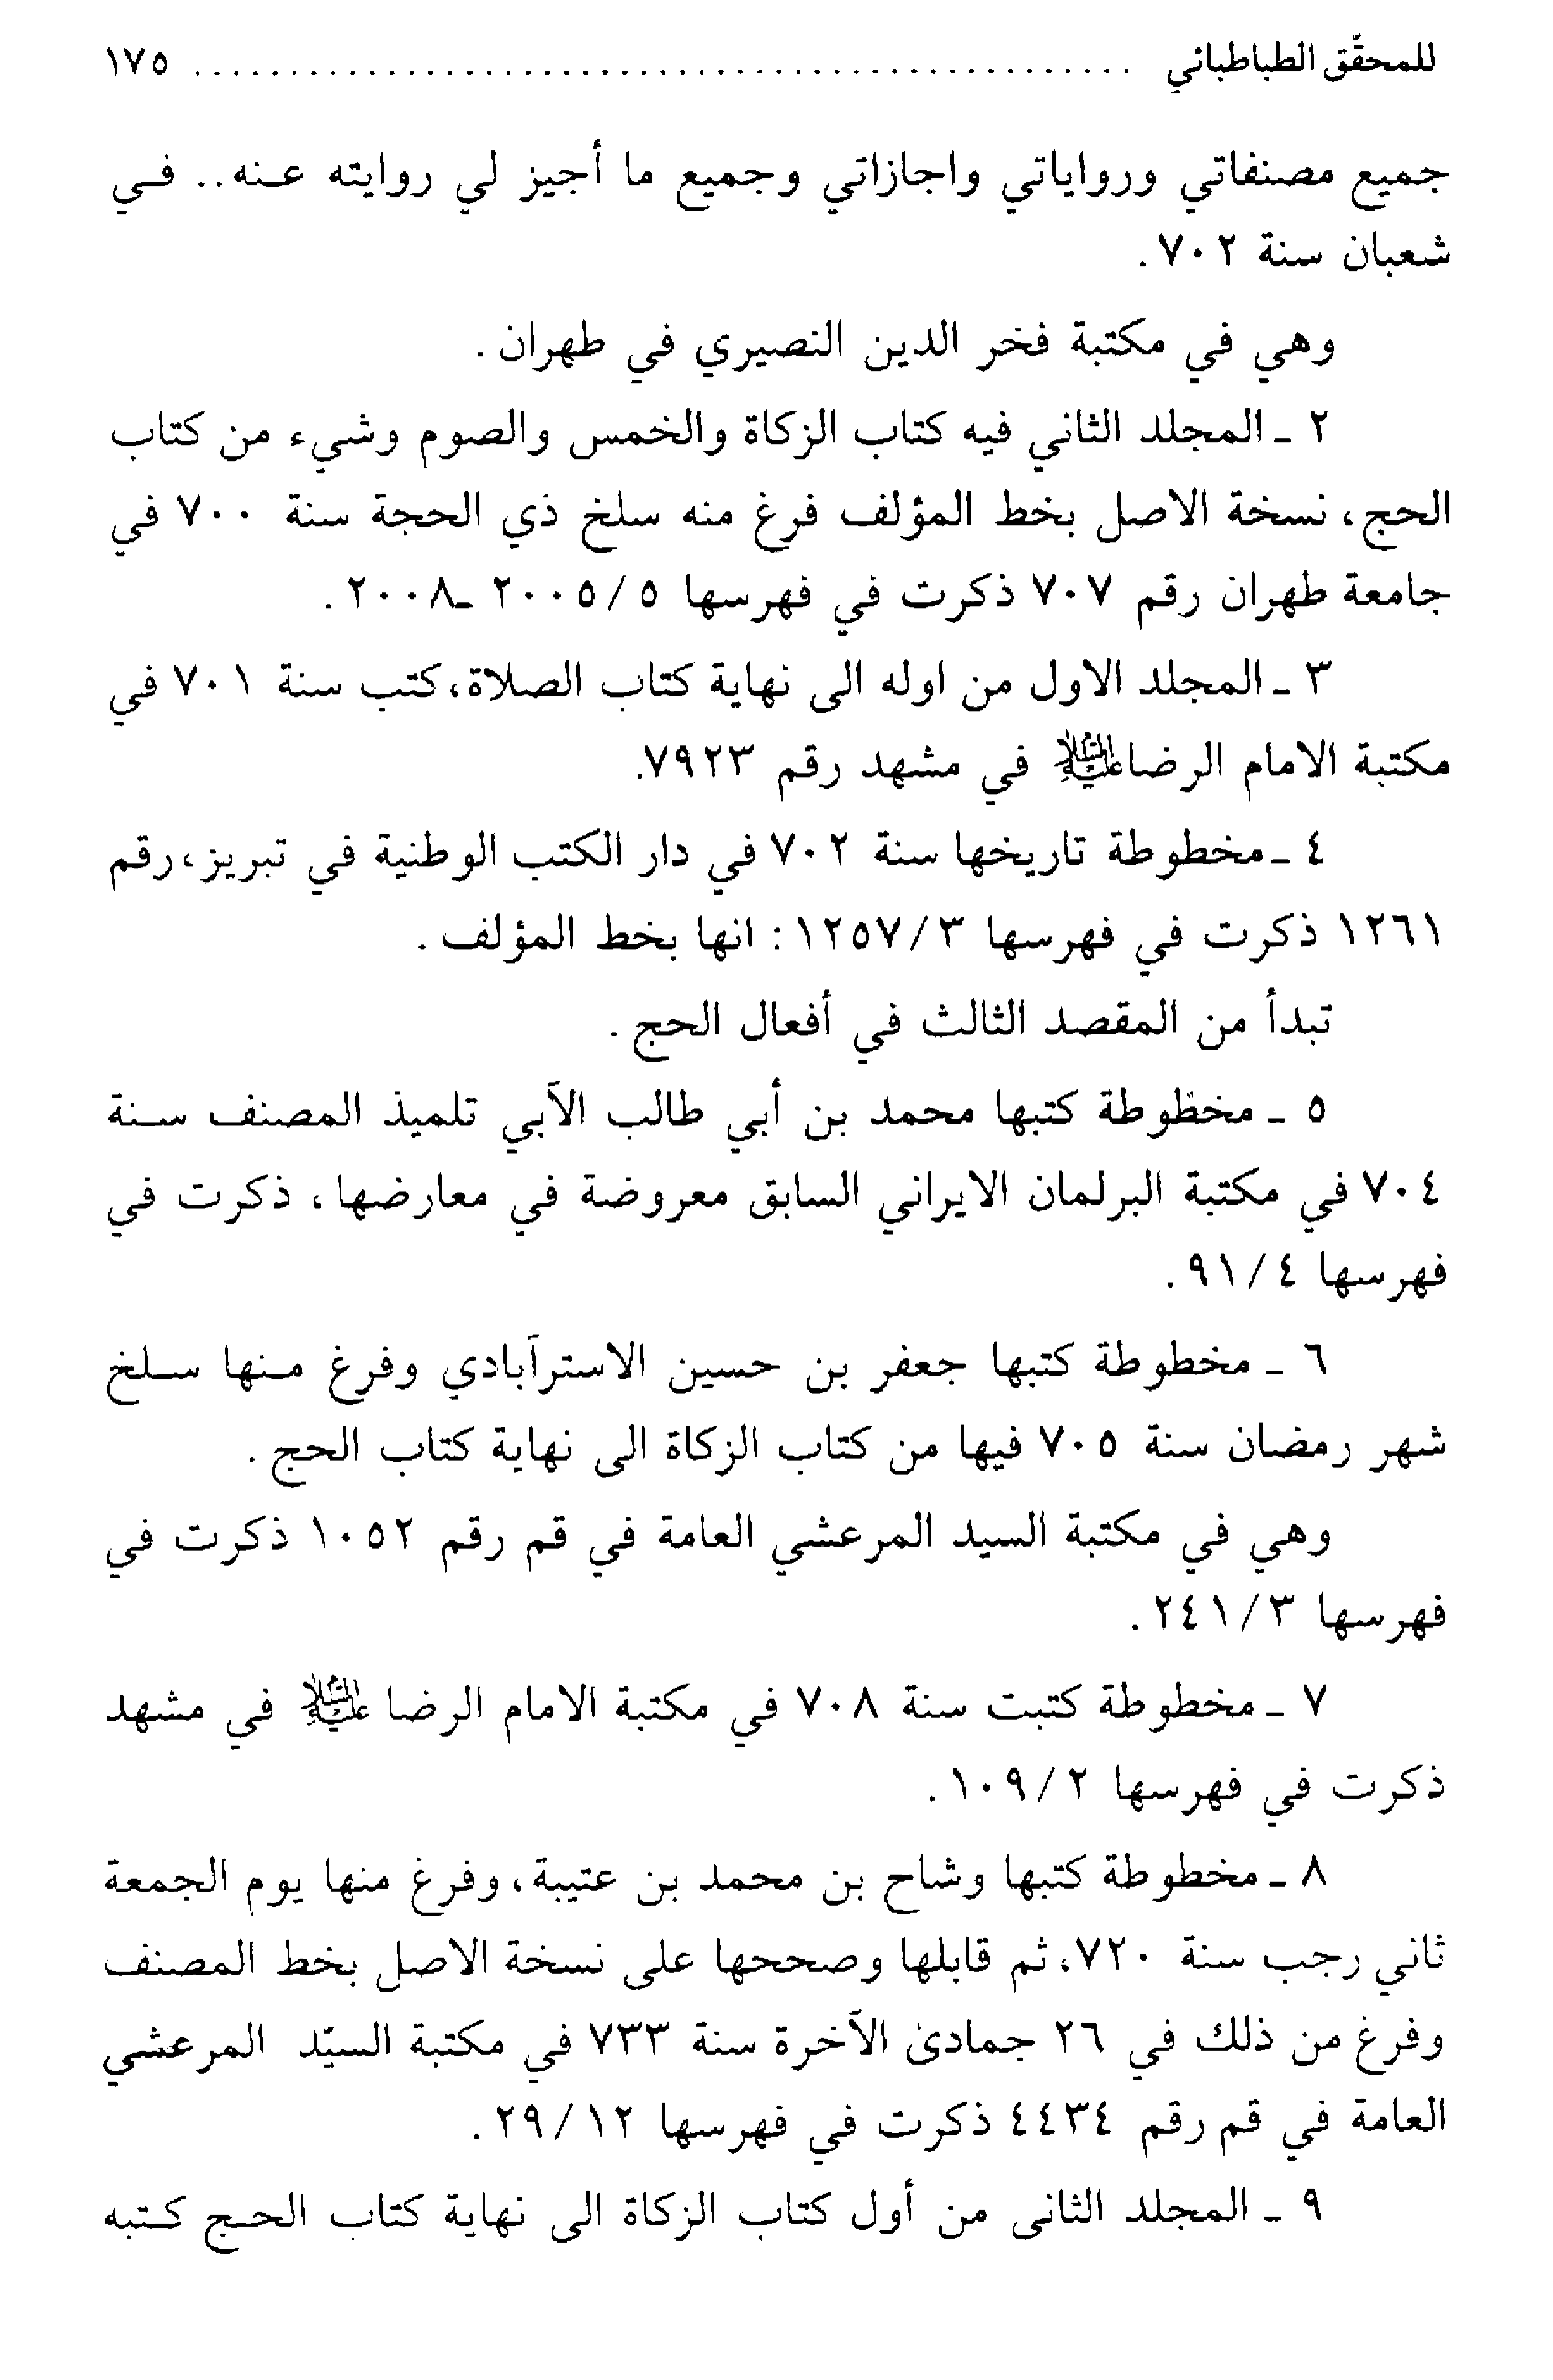 للمحقّق الطباطبائي ................................................ ١٧٥
جميع مصنفاتي ورواياتي واجازاتي وجميع ما أجيز لي روايته عنه .. في
شعبان سنة ٧٠٢ .
وهي في مكتبة فخر الدين النصيري في طهران .
٢ ـ المجلد الثاني فيه كتاب الزكاة والخمس والصوم وشيء من كتاب
الحج، نسخة الاصل بخط المؤلف فرغ منه سلخ ذي الحجة سنة ٧٠٠ في
جامعة طهران رقم ٧٠٧ ذكرت في فهرسها ٥ / ٢٠٠٥ ـ ٢٠٠٨ .
٣ ـ المجلد الاول من اوله الى نهاية كتاب الصلاة، كتب سنة ٧٠١ في
مكتبة الامام الرضا عليه‌السلام في مشهد رقم ٧٩٢٣.
٤ ـ مخطوطة تاريخها سنة ٧٠٢ في دار الكتب الوطنية في تبريز، رقم
١٢٦١ ذكرت في فهرسها ٣ / ١٢٥٧ : انها بخط المؤلف .
تبدأ من المقصد الثالث في أفعال الحج .
٥ ـ مخظوطة كتبها محمد بن أبي طالب الآبي تلميذ المصنف سنة
٧٠٤ في مكتبة البرلمان الايراني السابق معروضة في معارضها ، ذكرت في
فهرسها ٤ / ٩١ .
٦ ـ مخطوطة كتبها جعفر بن حسين الاسترآبادي وفرغ منها سلخ
شهر رمضان سنة ٧٠٥ فيها من كتاب الزكاة الى نهاية كتاب الحج .
وهي في مكتبة السيد المرعشي العامة في قم رقم ١٠٥٢ ذكرت في
فهرسها ٣ / ٢٤١ .
٧ ـ مخطوطة كتبت سنة ٧٠٨ في مكتبة الامام الرضا عليه‌السلام في مشهد
ذكرت في فهرسها ٢ / ١٠٩ .
٨ ـ مخطوطة كتبها وشاح بن محمد بن عتيبة، وفرغ منها يوم الجمعة
ثاني رجب سنة ٧٢٠، ثم قابلها وصححها على نسخة الاصل بخط المصنف
وفرغ من ذلك في ٢٦ جمادىٰ الآخرة سنة ٧٣٣ في مكتبة السيّد المرعشي
العامة في قم رقم ٤٤٣٤ ذكرت في فهرسها ١٢ / ٢٩ .
٩ ـ المجلد الثانى من أول كتاب الزكاة الى نهاية كتاب الحج كتبه